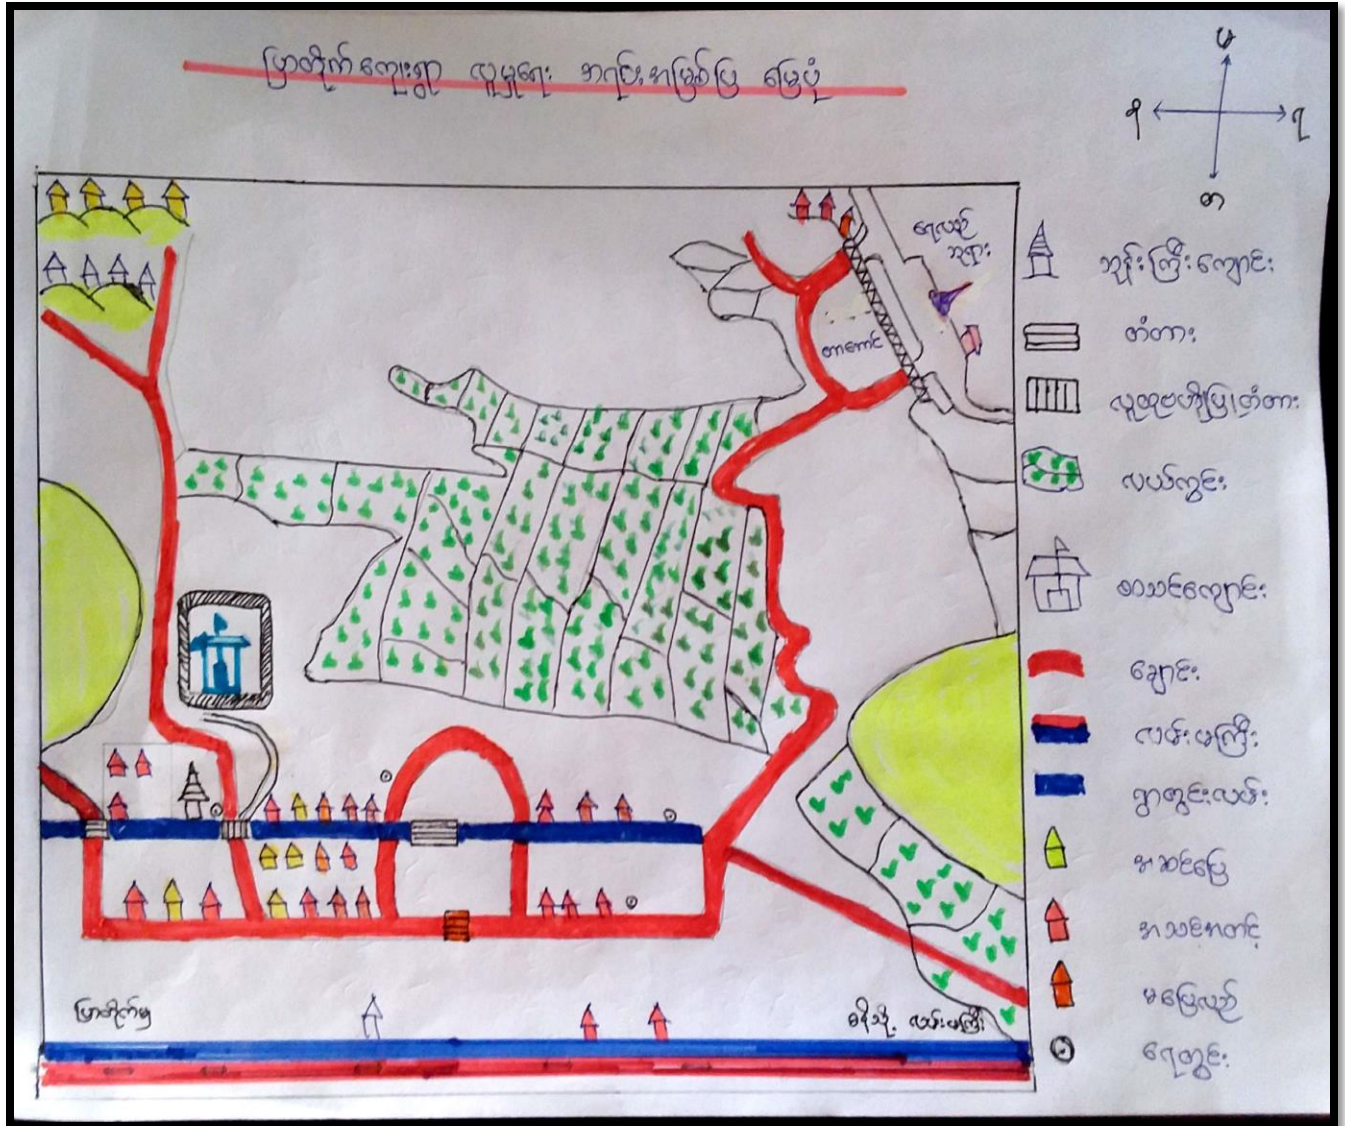 ပြာတိုက်ကျေးရွာ လူမှုရေး အရင်းအမြစ်ပြ မြေပုံ
မ
စ
ရေလည်
ဘုရား
တာတောင်
ဘုန်းကြီးကျောင်း
တံတား
တံတား
လယ်ကွင်း
စာသင်ကျောင်း
ချောင်း
လမ်းမကြီး
ရွာတွင်းလမ်း
အဆင်ပြေ
အသင့်အတင့်
မပြေလည်
ရေတွင်း
ပြာတိုက်မှ
လမ်းမကြီး